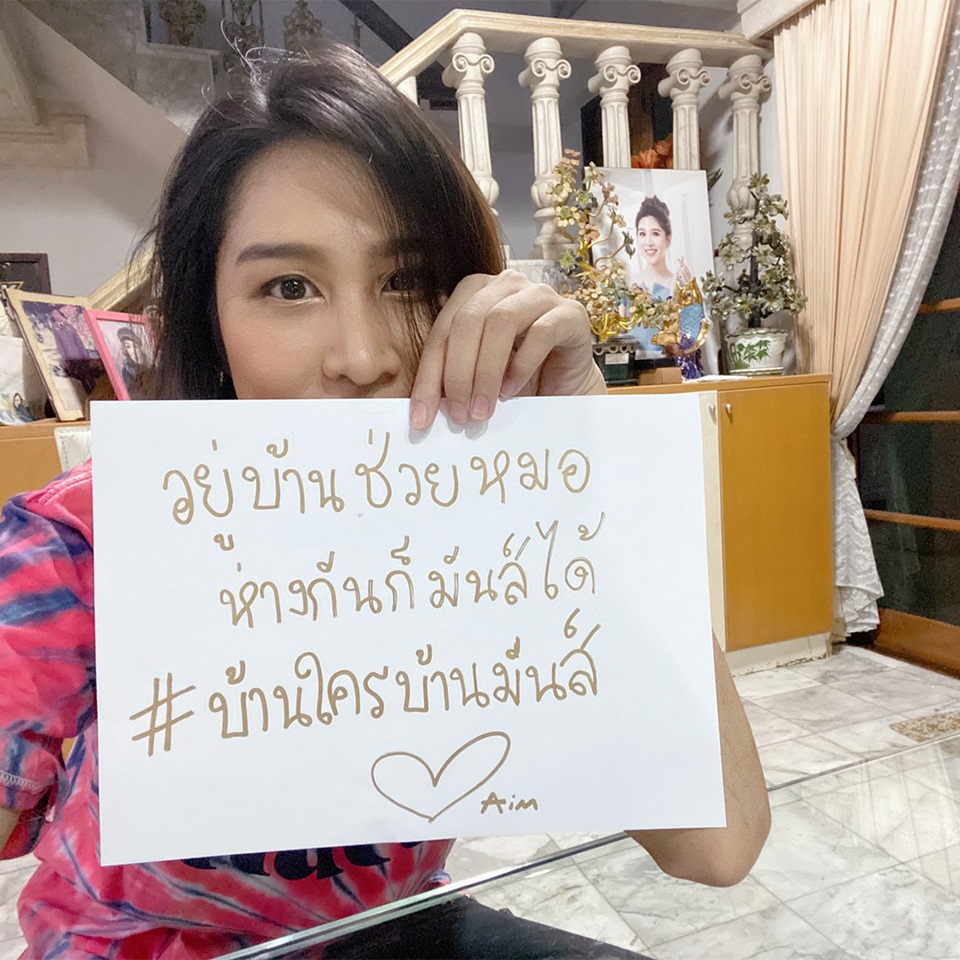 อยู่บ้านช่วยหมอ
ห่างกันก็มันส์ได้
#บ้านใครบ้านมันส์
Aim